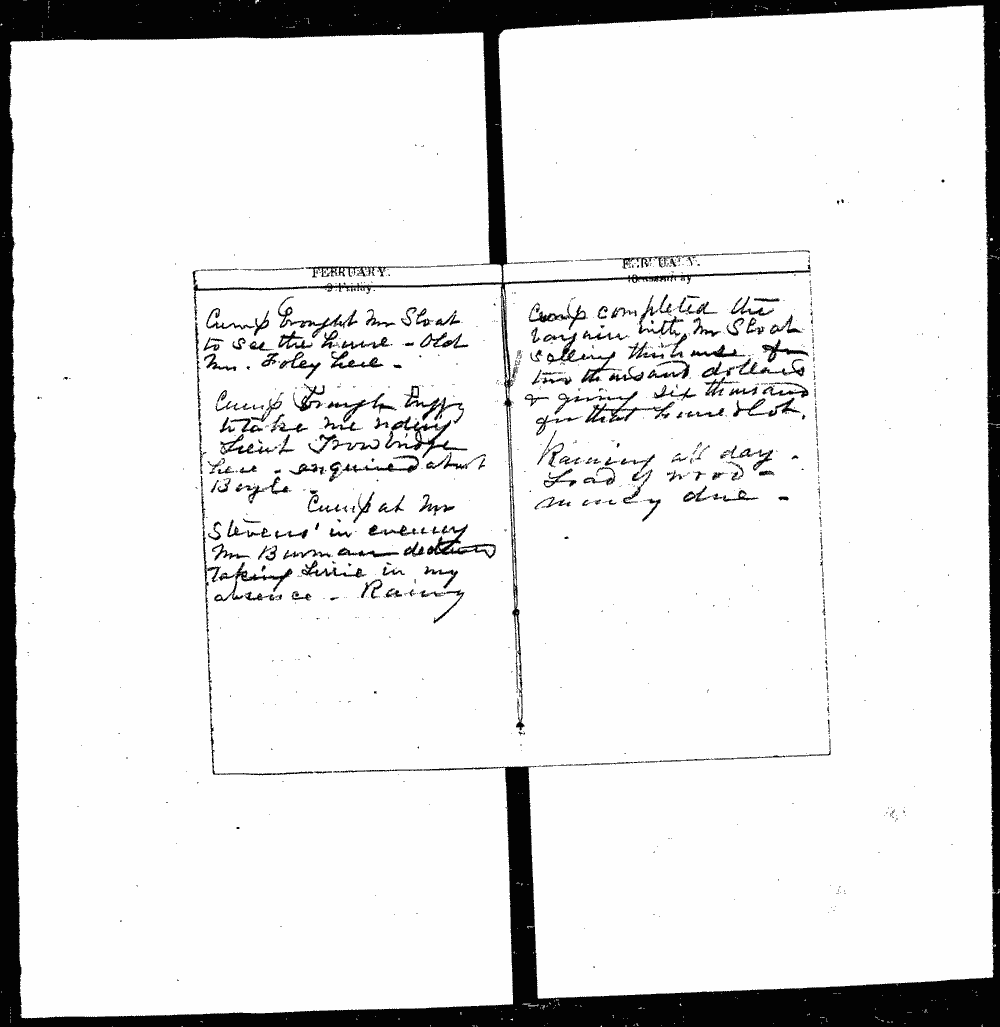 FEBRUARY.
9 Friday.
Cump brought Mr Sloat
to see the house - Old
Mrs. Foley here -
Cump brought buggy
to take me riding
Lieut Trowbridge
here - enquired about
Boyle -
Cump at Mr
Stevens' in evening
Mr Burman
taking Lizzie in my
absence - Rainy
FEBRUARY.
10 Saturday
Cump completed the
bargain with Mr Sloat
selling this house for
two thousand dollars
& giving six thousand
for that house & lot.
Raining all day -
Load of wood -
money due -